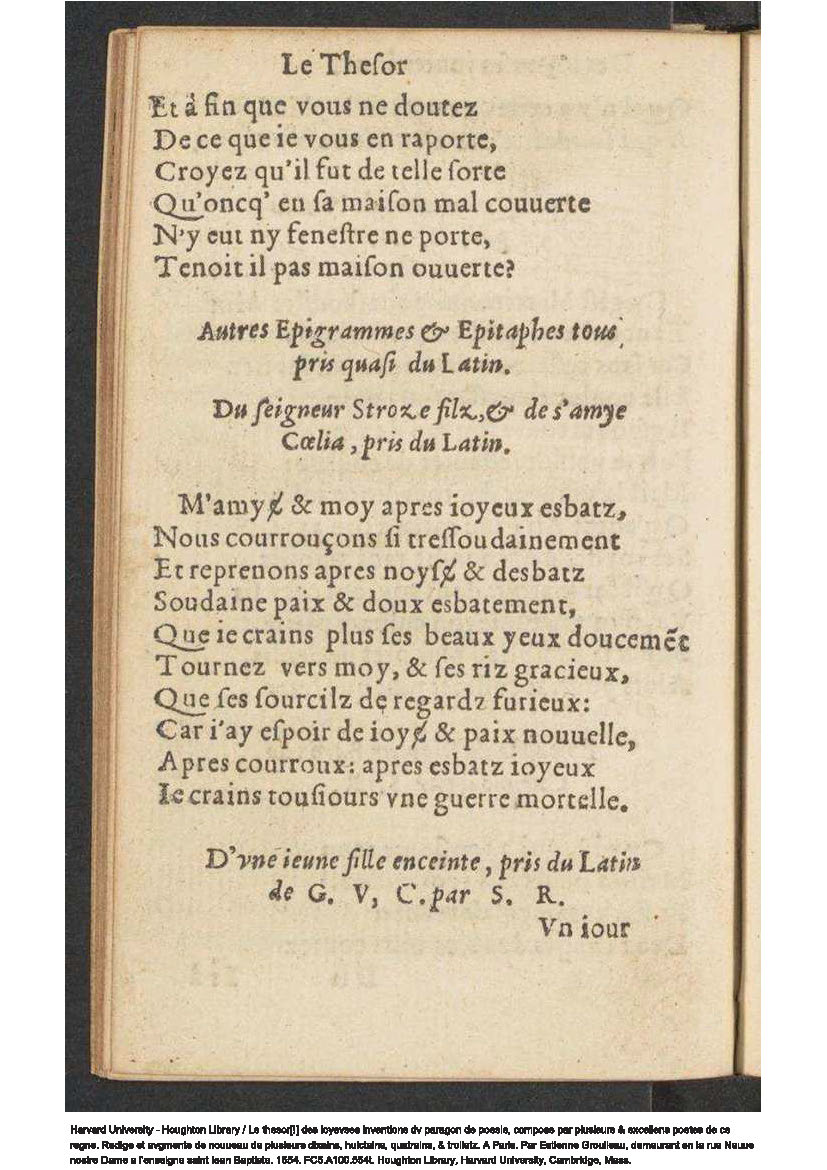 Le Theſor
Et à fin que vous ne doutez
De ce que ie vous en raporte,
Croyez qu'il fut de telle ſorte
Qu'oncq' en ſa maiſon mal couuerte
N'y eut ny feneſtre ne porte,
Tenoit il pas maiſon ouuerte?
Autres Epigrammes & Epitaphes tous
pris quaſi du Latin.
Du ſeigneur Stroze filz, & de s'amye
Cœlia, pris du Latin.
M'amyɇ & moy apres ioyeux esbatz,
Nous courrouçons ſi treſſoudainement
Et reprenons apres noyſɇ & desbatz
Soudaine paix & doux esbatement,
Que ie crains plus ſes beaux yeux doucemẽt
Tournez vers moy, & ſes riz gracieux,
Que ſes ſourcilz de regardz furieux:
Car i'ay eſpoir de ioyɇ & paix nouuelle,
Apres courroux: apres esbatz ioyeux
Ie crains touſiours vne guerre mortelle.
D'vne ieune fille enceinte, pris du Latin
de G. V, C. par S. R.
Vn iour
Harvard University - Houghton Library / Le thesor[i] des ioyevses inventions dv paragon de poesie, compose par plusieurs & excellens poetes de ce
regne. Redige et avgmente de nouueau de plusieurs dixains, huictains, quatrains, & trolletz. A Paris. Par Estienne Groulleau, demeurant en la rue Neuue
nostre Dame a l'enseigne saint Iean Baptiste. 1554. FC5.A100.554t. Houghton Library, Harvard University, Cambridge, Mass.